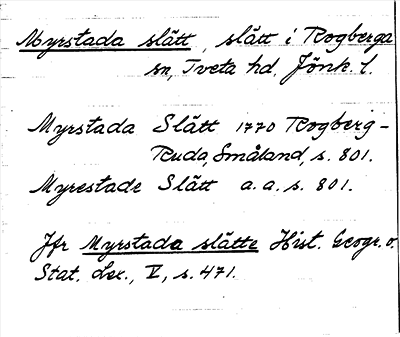 Myrstada slätt, slätt i Rogberga
sn, Tveta hd. Jönk. l.
Myrstada Slätt 1770 Rogberg-
Ruda, Småland, s. 801.
Myrestade Slätt a. a. s. 801.
Jfr Myrstada slätte Hist. Geogr. o.
Stat. Lex., V, s. 471.